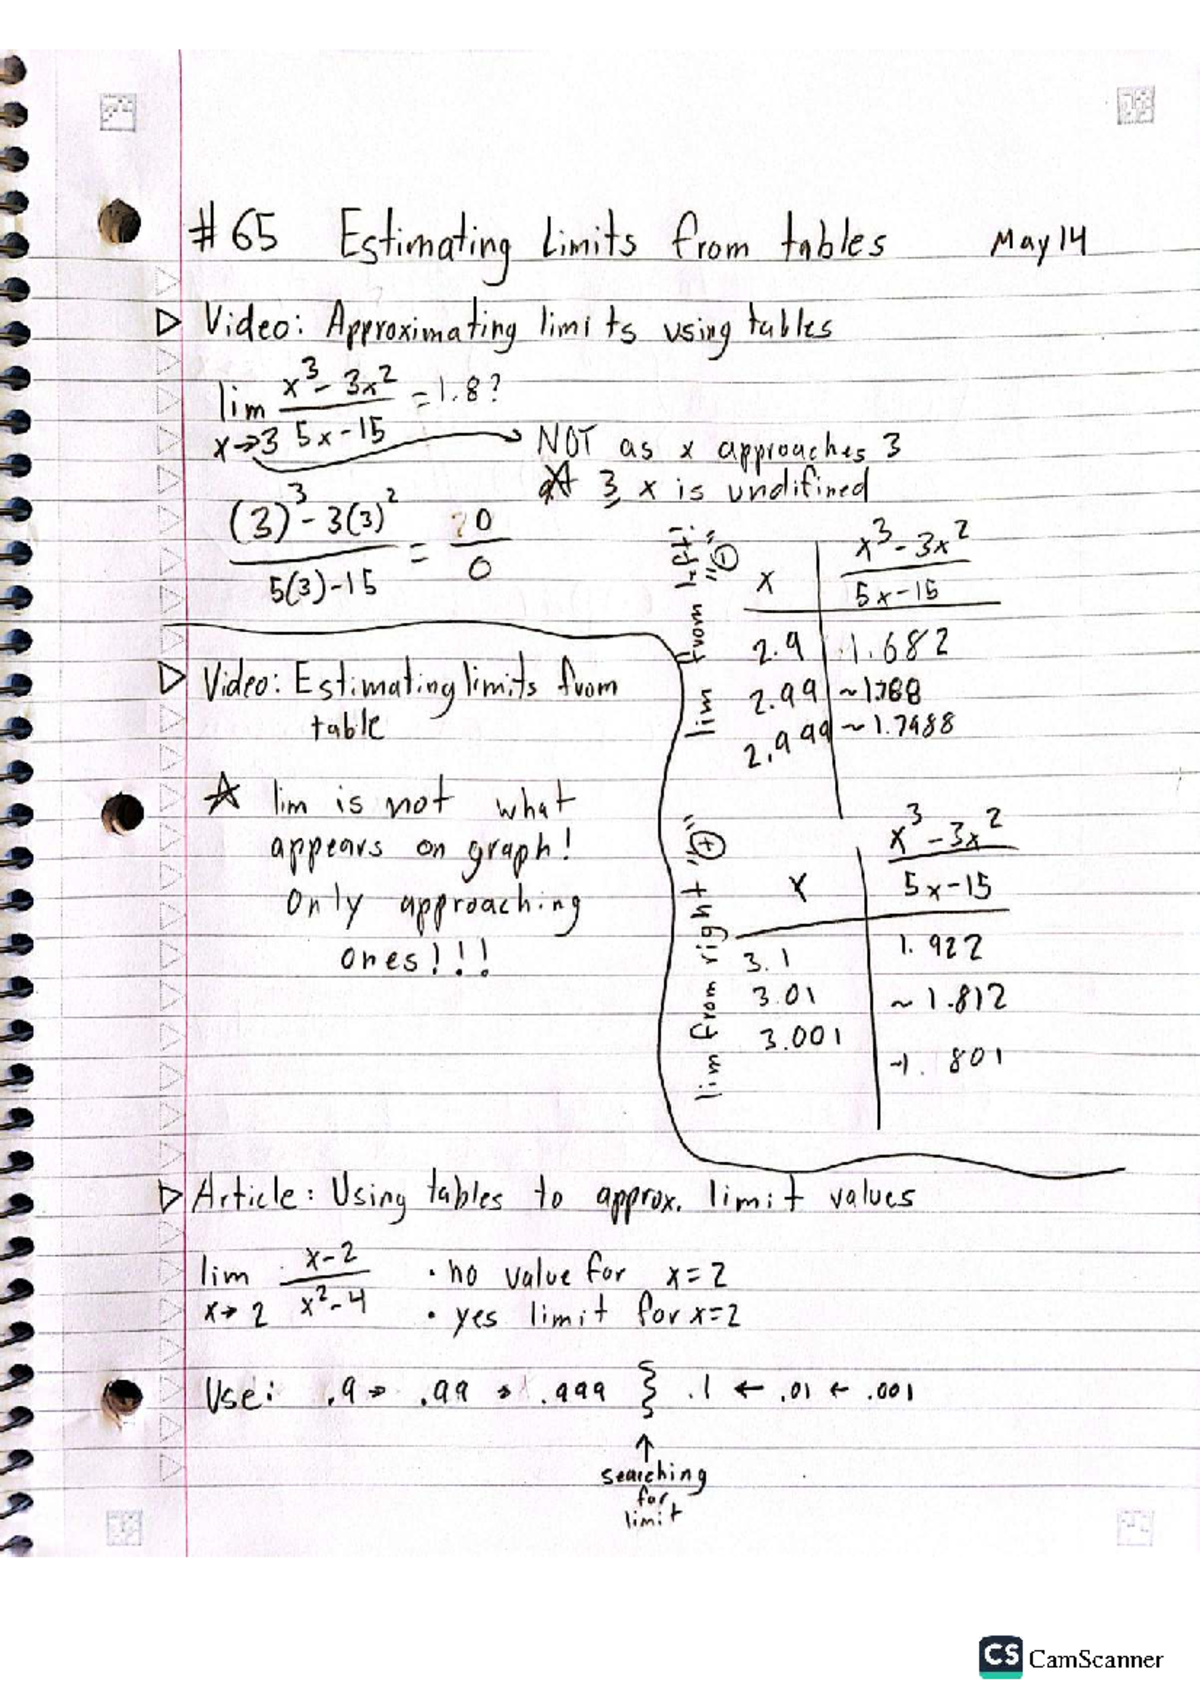 #65 Estimating Limits from tables May 14
▷ Video: Approximating limits using tables
lim x→3 (x³-3x²)/(5x-15) = 1.8?
NOT as x approaches 3
At 3 x is undifined
((3)³-3(3)²)/(5(3)-15) = 0/0
lim from left! "(-)"
x | (x³-3x²)/(5x-15)
2.9 | 1.682
2.99 | ~1.788
2.999 | ~1.7988
▷ Video: Estimating limits from
table
☆ lim is not what
appears on graph!
Only approaching
ones!!!
lim from right "(+)"
x | (x³-3x²)/(5x-15)
3.1 | 1.922
3.01 | ~1.812
3.001 | ~1.801
▷ Article: Using tables to approx. limit values
lim x→2 (x-2)/(x²-4)
• no value for x=2
• yes limit for x=2
Use: .9 → .99 → .999 } .1 ← .01 ← .001
↑
searching
for
limit
CS CamScanner